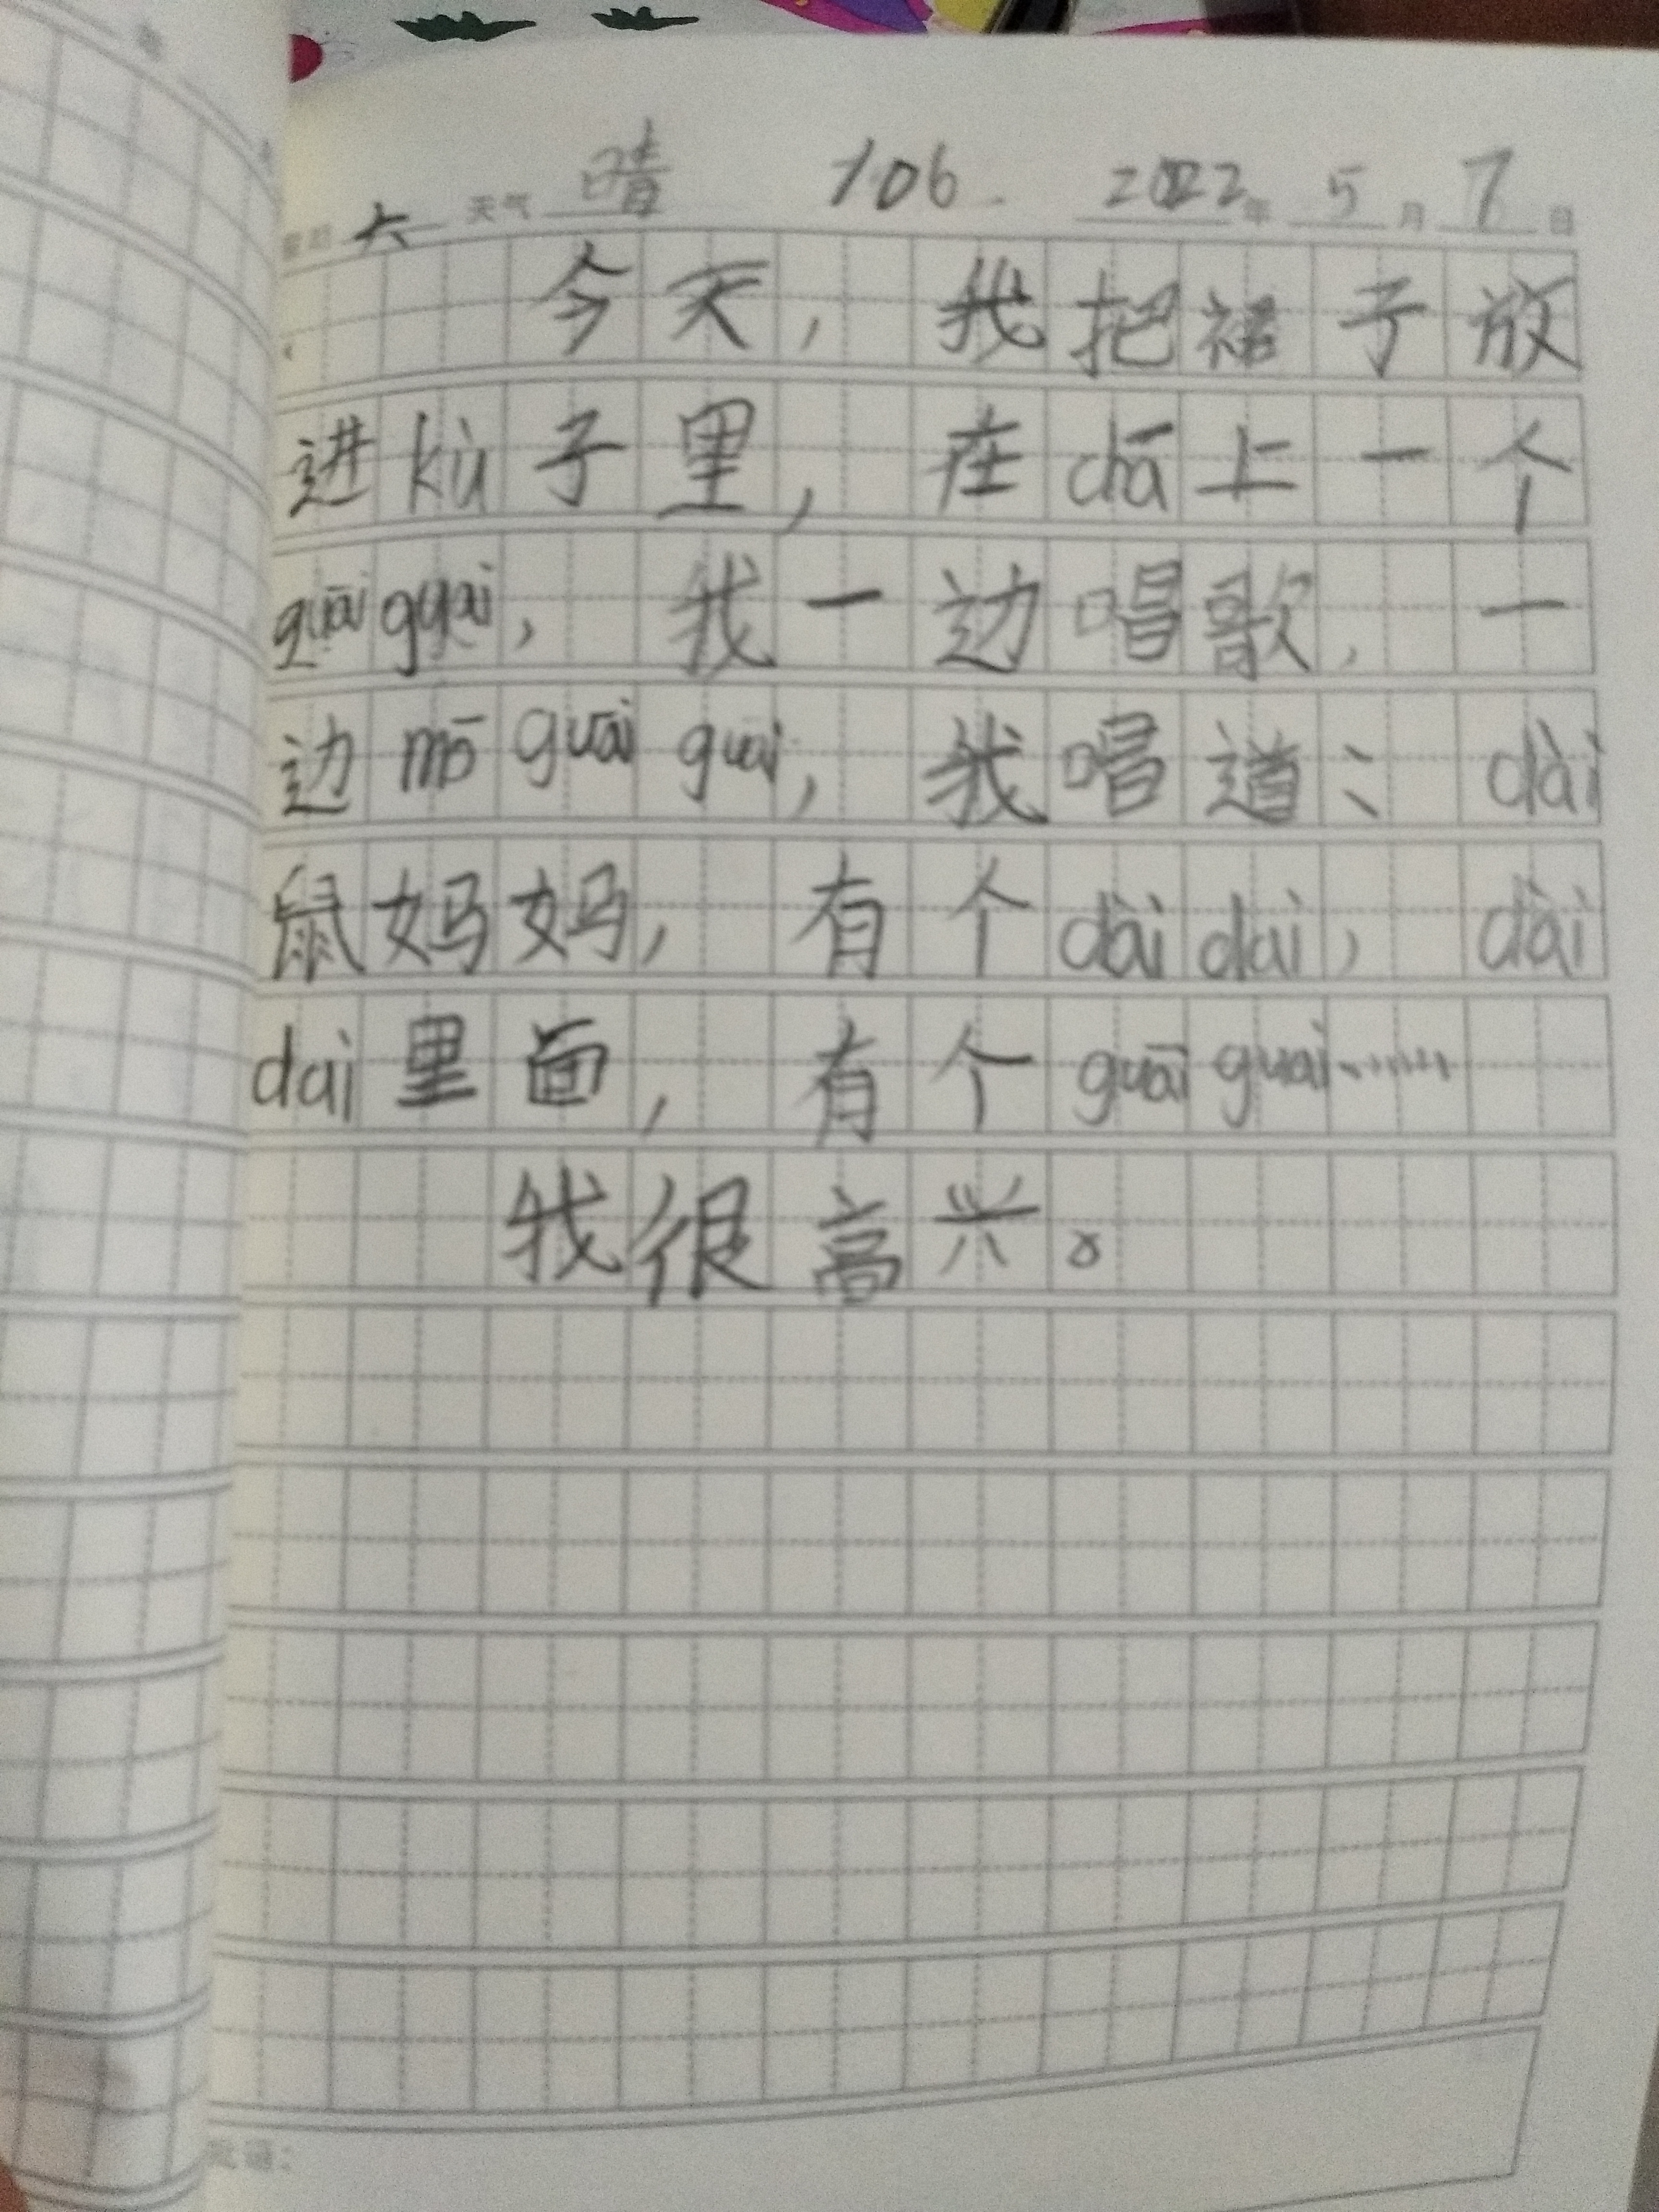 星期 六 天气 晴 106. 2022年 5 月 7 日
今天，我把裙子放
进kù子里，在chā上一个
guāi guai，我一边唱歌，一
边mō guāi guai，我唱道：dài
鼠妈妈，有个dài dai，dài
dai里面，有个guāi guai……
我很高兴。